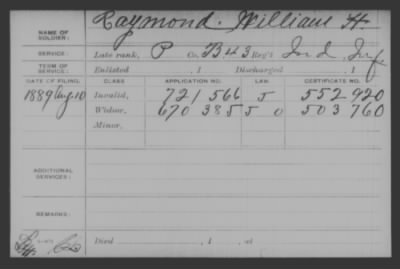 NAME OF SOLDIER: Raymond. William H.
SERVICE: Late rank, P Co. B 43 Reg't Ind Inf
TERM OF SERVICE: Enlisted , 1 Discharged , 1
DATE OF FILING. CLASS APPLICATION NO. LAW. CERTIFICATE NO.
1889 Aug. 10 Invalid, 721 566 J 552 920
Widow, 670 385 J 0 503 760
Minor,
ADDITIONAL SERVICES:
REMARKS:
Died , 1 , at